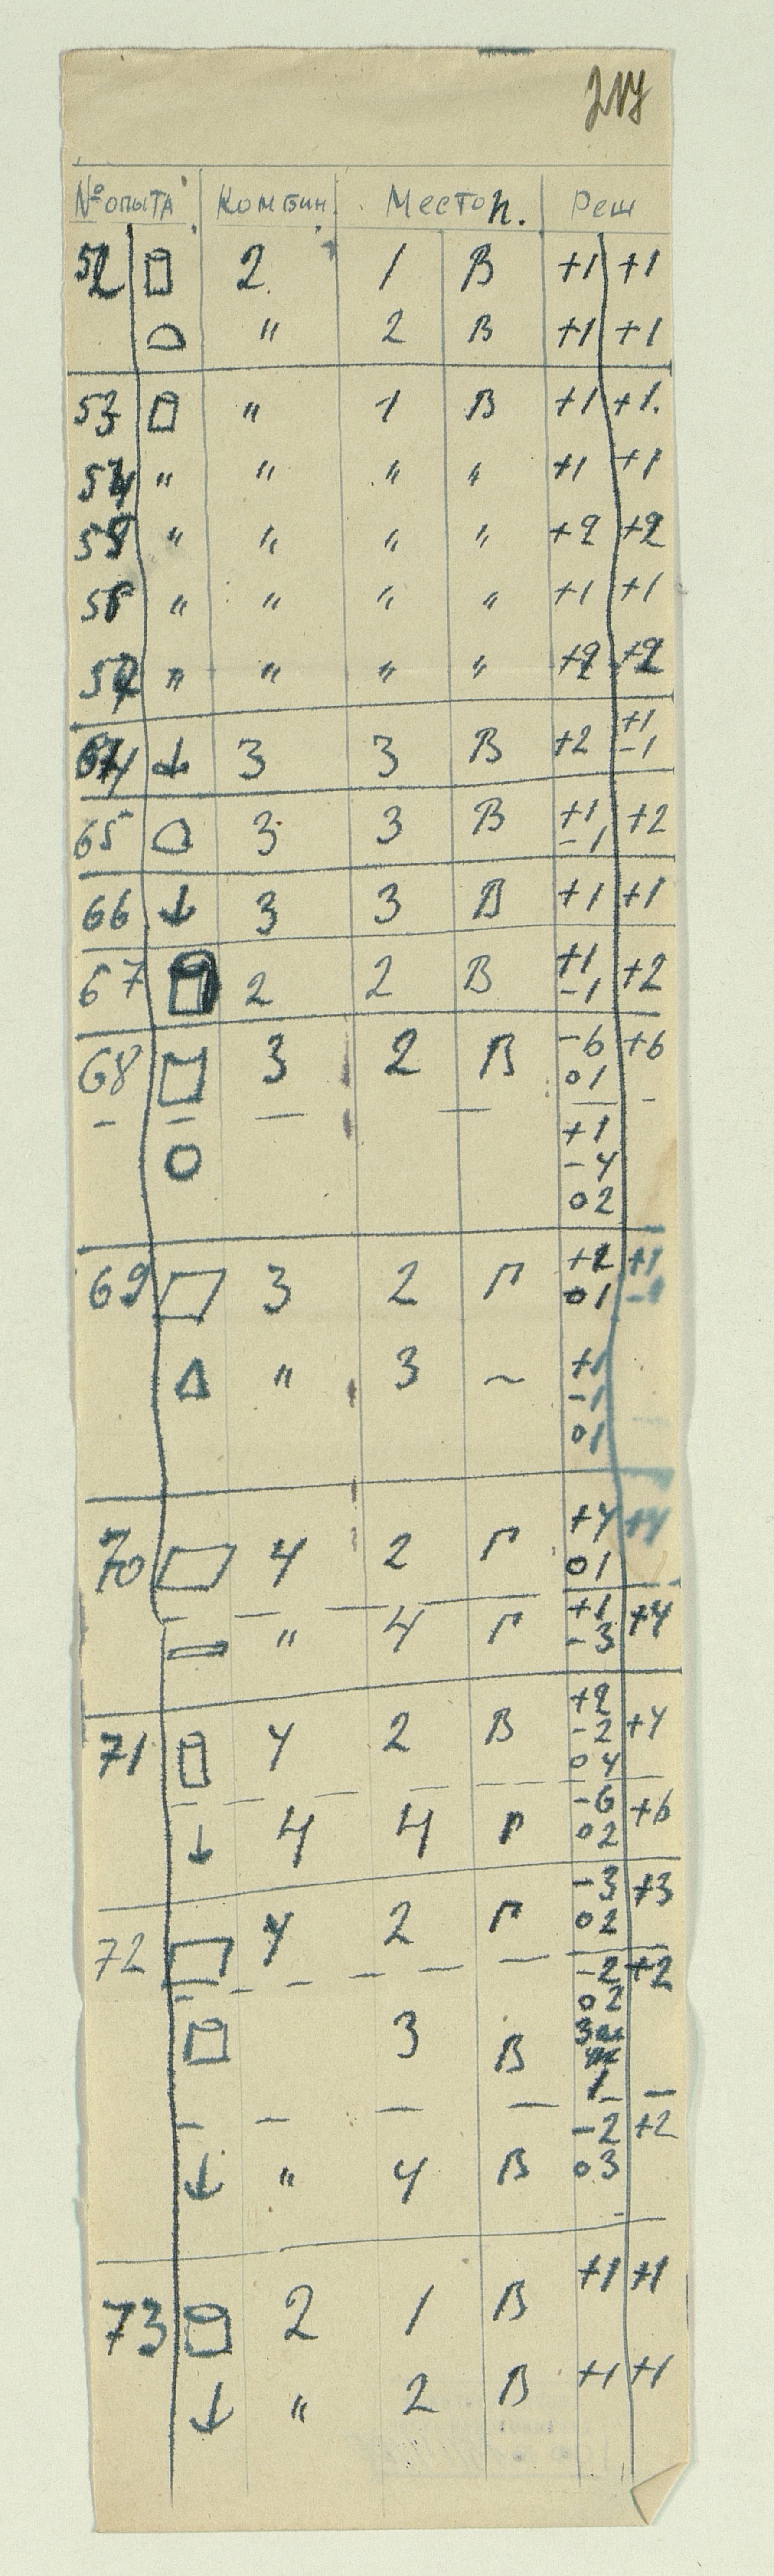 № опыта Комбин. Местоп. Реш
52 2 1 В +1 +1
" 2 В +1 +1
53 " 1 В +1 +1.
54 " " " " +1 +1
" " " " +2 +2
" " " " +1 +1
" " " " +2 +2
64 3 3 В +2 +1
-1
65 3 3 В +1 +2
-1
66 3 3 В +1 +1
67 2 2 В +1 +2
-1
68 3 2 В -6 +6
01
+1
-4
02
69 3 2 Г +2 +1
01 -1
" 3 ~ +1
-1
01
70 4 2 Г +4 +4
01
" 4 Г +1 +4
-3
71 4 2 В +2 +4
-2
04
4 4 Г -6 +6
02
72 4 2 Г -3 +3
02
3 В -2 +2
02
1
" 4 В -2 +2
03
73 2 1 В +1 +1
" 2 В +1 +1